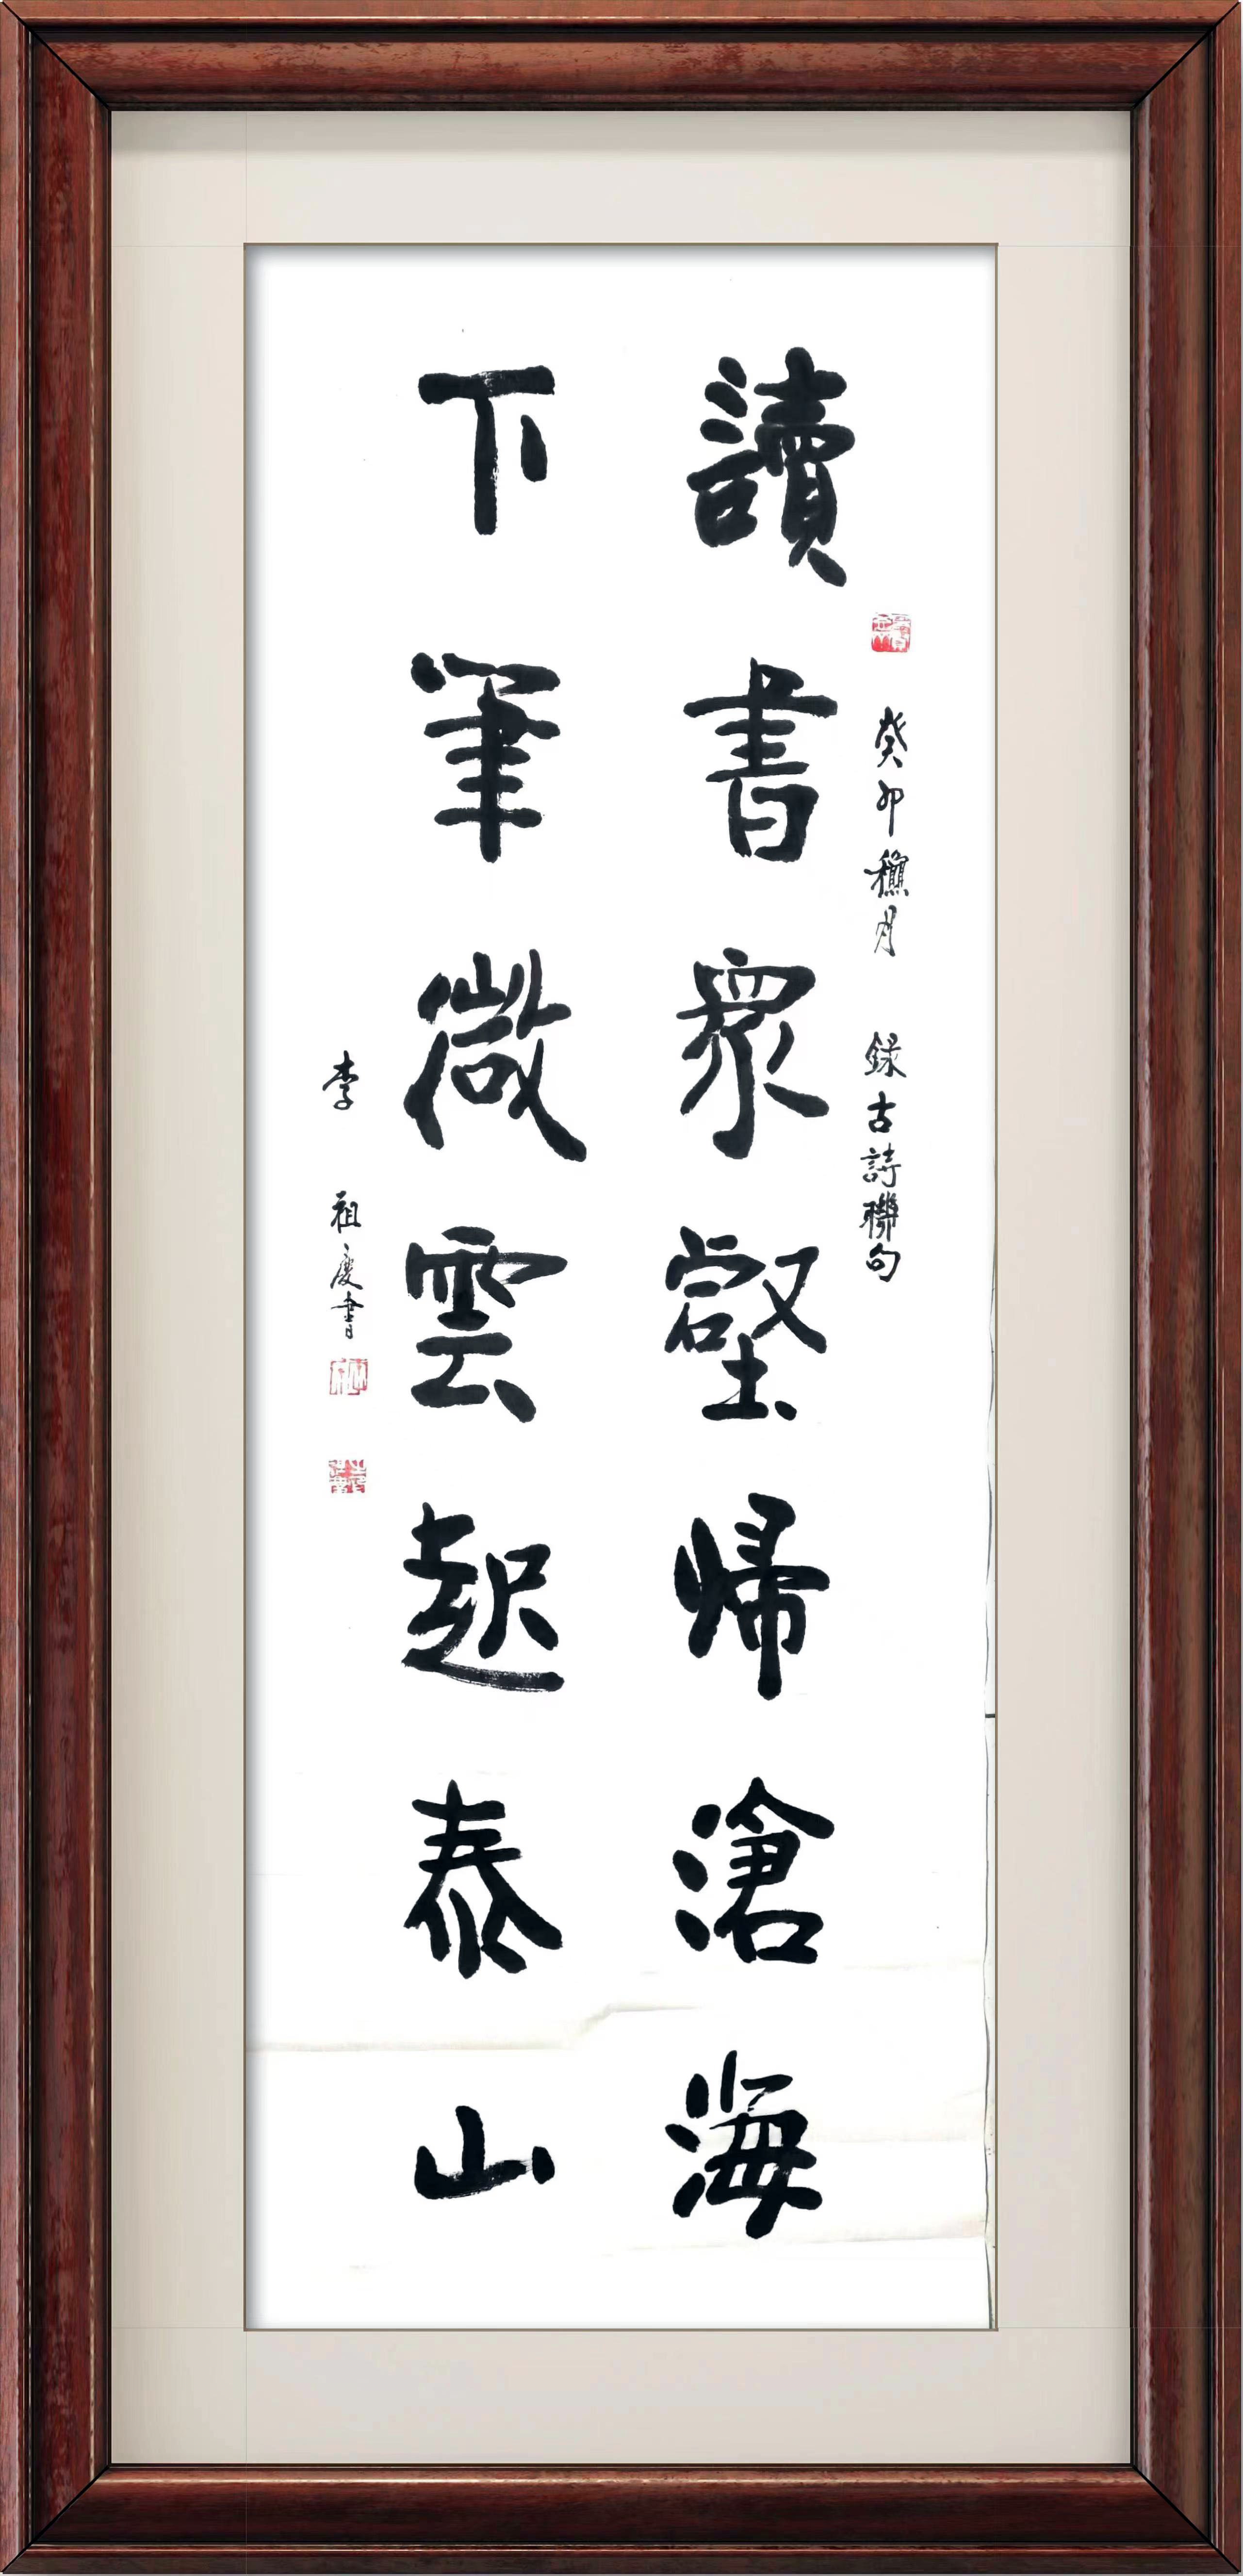 讀書衆壑歸滄海
癸卯穐月 録古詩聯句
下筆微雲起泰山
李祖慶書